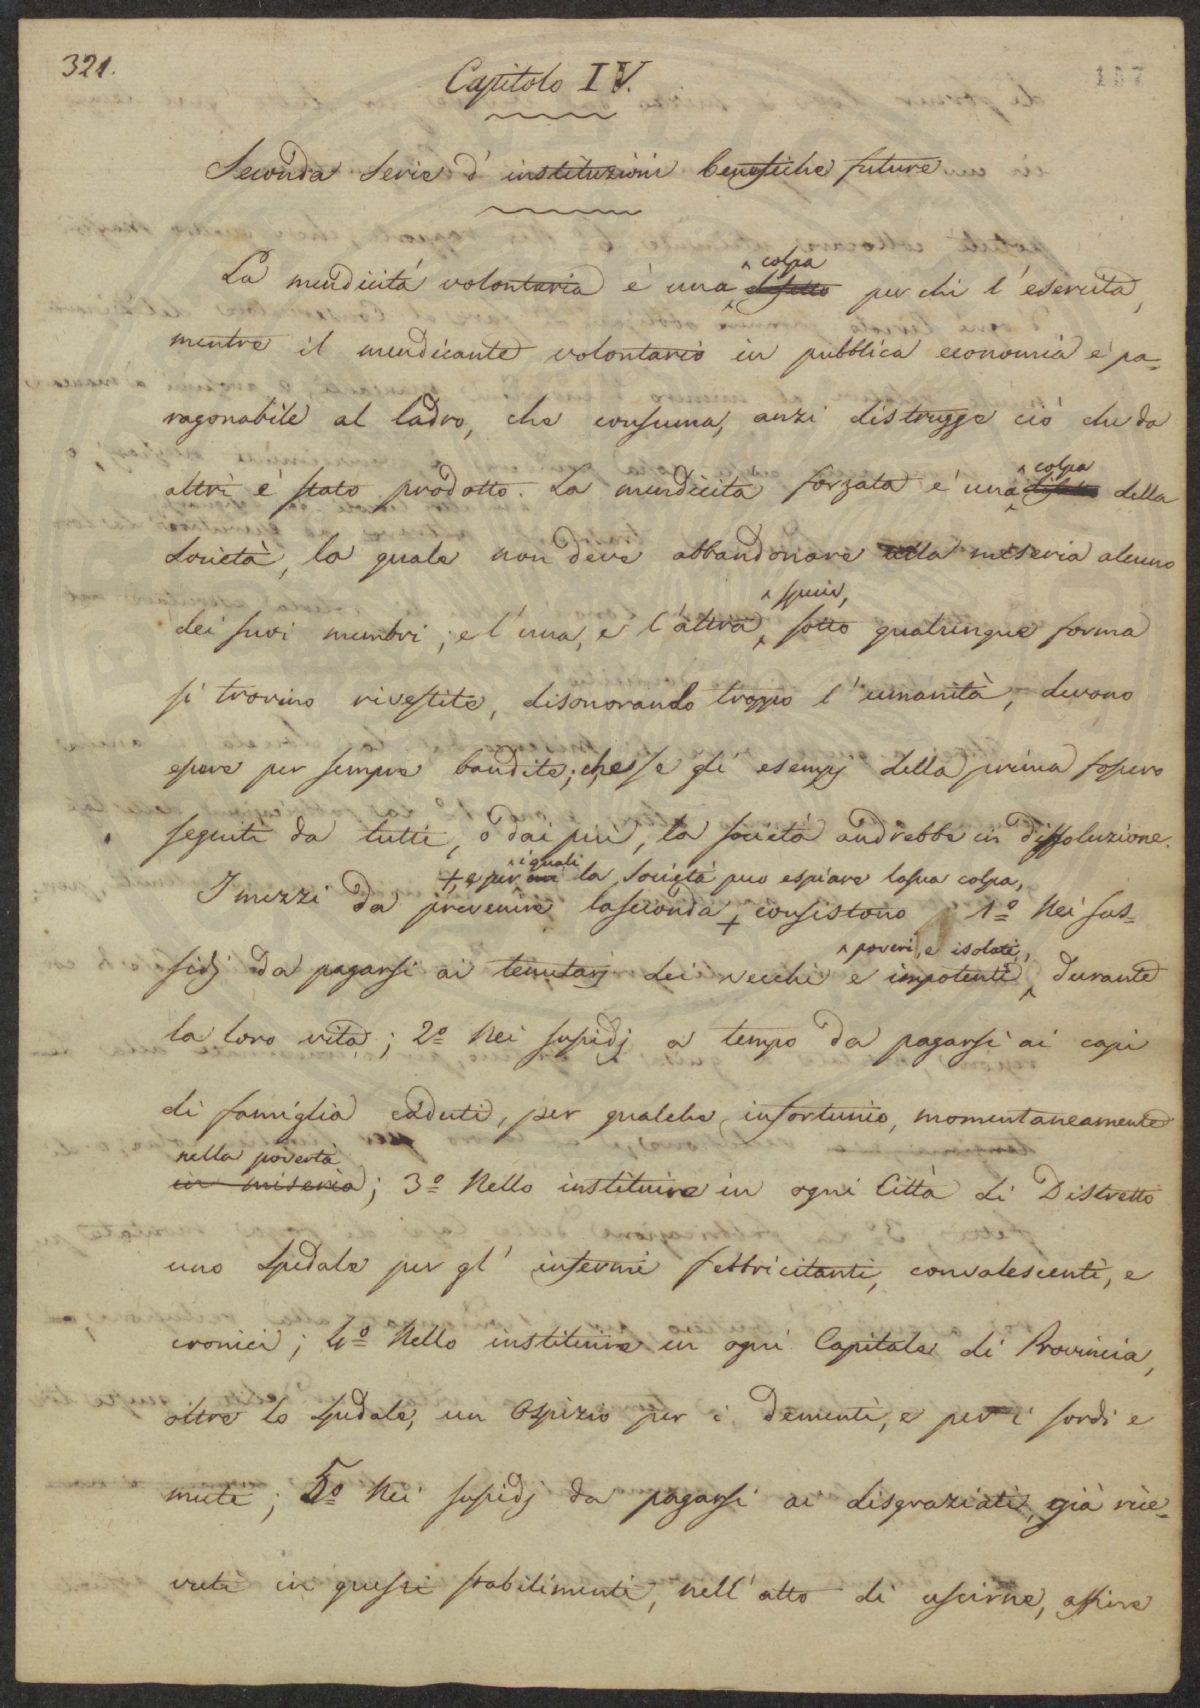 321.
Capitolo IV.
107
Seconda Serie d' instituzioni benefiche future
La mendicità volontaria è una ^ colpa difetto per chi l'esercita,
mentre il mendicante volontario in pubblica economia è pa-
ragonabile al ladro, che consuma, anzi distrugge ciò che da
altri è stato prodotto. La mendicità forzata è una ^ colpa difetto della
Società, la quale non deve abbandonare alla miseria alcuno
dei suoi membri; e l'una, e l'altra ^ specie, sotto qualunque forma
si trovino rivestite, disonorando troppo l'umanità, devono
essere per sempre bandite; che se gli esempj della prima fossero
seguiti da tutti, o dai più, la società andrebbe in dissoluzione.
+, e per ^ i quali la Società può espiare la sua colpa,
I mezzi da prevenire la seconda + consistono 1º Nei sus-
sidj da pagarsi ai tenutarj dei vecchi e impotenti ^ poveri, e isolati, durante
la loro vita; 2º Nei sussidj a tempo da pagarsi ai capi
di famiglia caduti, per qualche infortunio, momentaneamente
nella povertà
in miseria; 3º Nello instituire in ogni Città di Distretto
uno Spedale per gl' infermi febbricitanti, convalescenti, e
cronici; 4º Nello instituire in ogni Capitale di Provincia,
oltre lo Spedale, un Ospizio per i dementi, e per i sordi e
muti; 5º Nei sussidj da pagarsi ai disgraziati, già rice-
vuti in questi stabilimenti, nell'atto di uscirne, affine